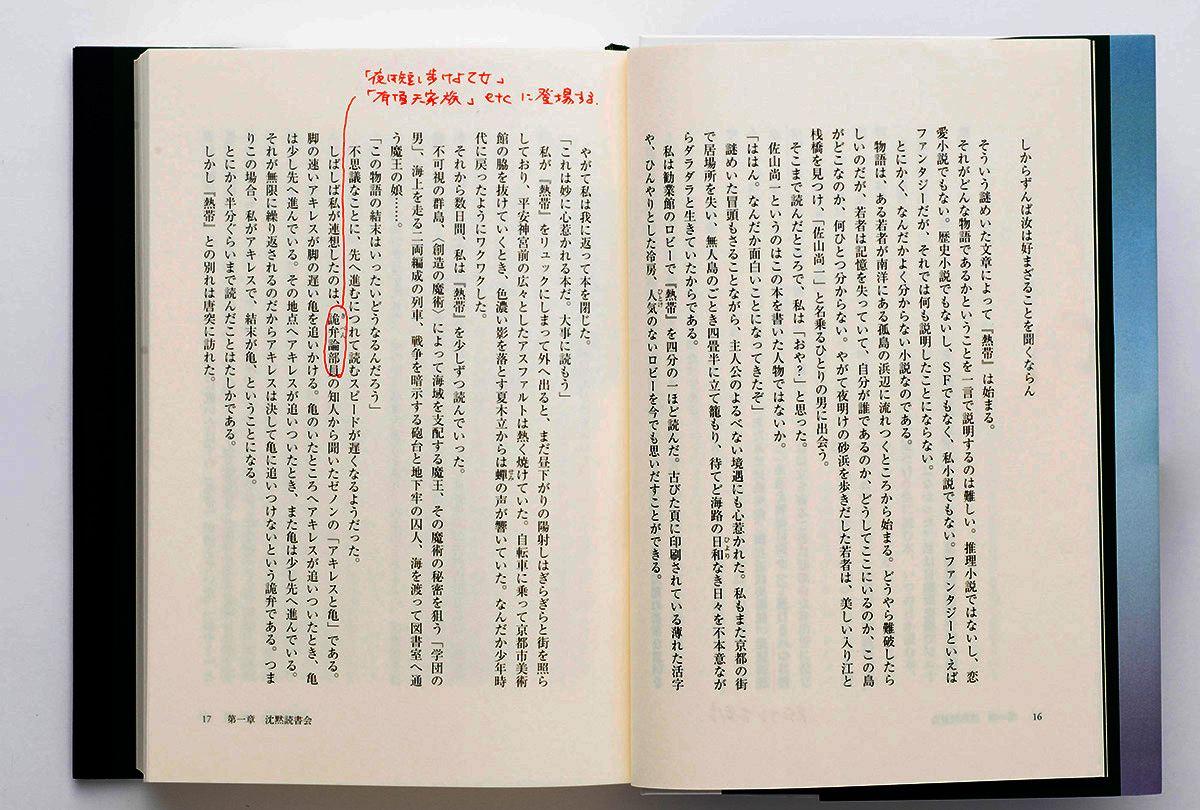 しからずんば汝は好まざることを聞くならん
そういう謎めいた文章によって『熱帯』は始まる。
それがどんな物語であるかということを一言で説明するのは難しい。推理小説ではないし、恋
愛小説でもない。歴史小説でもないし、ＳＦでもなく、私小説でもない。ファンタジーといえば
ファンタジーだが、それでは何も説明したことにならない。
とにかく、なんだかよく分からない小説なのである。
物語は、ある若者が南洋にある孤島の浜辺に流れつくところから始まる。どうやら難破したら
しいのだが、若者は記憶を失っていて、自分が誰であるのか、どうしてここにいるのか、この島
がどこなのか、何ひとつ分からない。やがて夜明けの砂浜を歩きだした若者は、美しい入り江と
桟橋を見つけ、「佐山尚一」と名乗るひとりの男に出会う。
そこまで読んだところで、私は「おや？」と思った。
佐山尚一というのはこの本を書いた人物ではないか。
「ははん。なんだか面白いことになってきたぞ」
謎めいた冒頭もさることながら、主人公のよるべない境遇にも心惹かれた。私もまた京都の街
で居場所を失い、無人島のごとき四畳半に立て籠もり、待てど海路の日和なき日々を不本意なが
らダラダラと生きていたからである。
私は勧業館のロビーで『熱帯』を四分の一ほど読んだ。古びた頁に印刷されている薄れた活字
や、ひんやりとした冷房、人気のないロビーを今でも思いだすことができる。
16
やがて私は我に返って本を閉じた。
「これは妙に心惹かれる本だ。大事に読もう」
私が『熱帯』をリュックにしまって外へ出ると、まだ昼下がりの陽射しはぎらぎらと街を照ら
しており、平安神宮前の広々としたアスファルトは熱く焼けていた。自転車に乗って京都市美術
館の脇を抜けていくとき、色濃い影を落とす夏木立からは蟬の声が響いていた。なんだか少年時
代に戻ったようにワクワクした。
それから数日間、私は『熱帯』を少しずつ読んでいった。
不可視の群島、〈創造の魔術〉によって海域を支配する魔王、その魔術の秘密を狙う「学団の
男」、海上を走る二両編成の列車、戦争を暗示する砲台と地下牢の囚人、海を渡って図書室へ通
う魔王の娘……。
「この物語の結末はいったいどうなるんだろう」
不思議なことに、先へ進むにつれて読むスピードが遅くなるようだった。
しばしば私が連想したのは、詭弁論部員の知人から聞いたゼノンの「アキレスと亀」である。
脚の速いアキレスが脚の遅い亀を追いかける。亀のいたところへアキレスが追いついたとき、亀
は少し先へ進んでいる。その地点へアキレスが追いついたとき、また亀は少し先へ進んでいる。
それが無限に繰り返されるのだからアキレスは決して亀に追いつけないという詭弁である。つま
りこの場合、私がアキレスで、結末が亀、ということになる。
とにかく半分ぐらいまで読んだことはたしかである。
しかし『熱帯』との別れは唐突に訪れた。
17 第一章 沈黙読書会
「夜は短し歩けよ乙女」
「有頂天家族」etcに登場する。